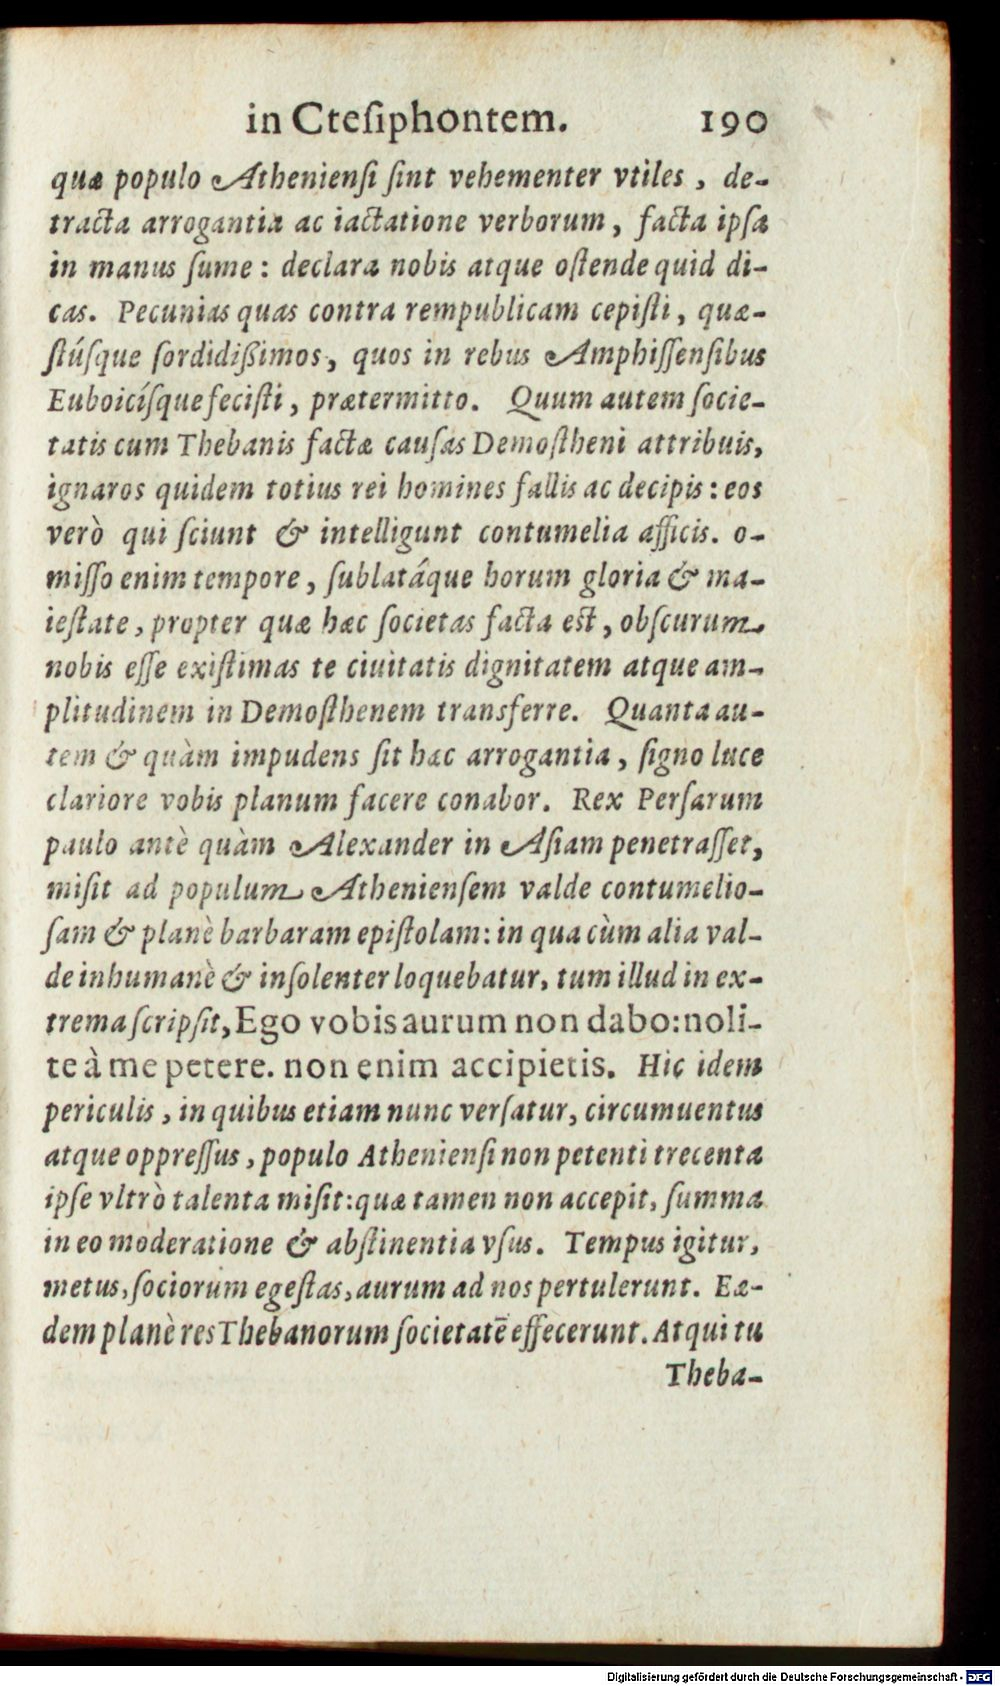 in Ctesiphontem. 190
quæ populo Atheniensi sint vehementer vtiles, de-
tracta arrogantia ac iactatione verborum, facta ipsa
in manus sume: declara nobis atque ostende quid di-
cas. Pecunias quas contra rempublicam cepisti, quæ-
stúsque sordidißimos, quos in rebus Amphissensibus
Euboicísque fecisti, prætermitto. Quum autem socie-
tatis cum Thebanis factæ causas Demostheni attribuis,
ignaros quidem totius rei homines fallis ac decipis: eos
verò qui sciunt & intelligunt contumelia afficis. o-
misso enim tempore, sublatáque horum gloria & ma-
iestate, propter quæ hæc societas facta est, obscurum
nobis esse existimas te ciuitatis dignitatem atque am-
plitudinem in Demosthenem transferre. Quanta au-
tem & quàm impudens sit hæc arrogantia, signo luce
clariore vobis planum facere conabor. Rex Persarum
paulo antè quàm Alexander in Asiam penetrasset,
misit ad populum Atheniensem valde contumelio-
sam & planè barbaram epistolam: in qua cùm alia val-
de inhumanè & insolenter loquebatur, tum illud in ex-
trema scripsit, Ego vobis aurum non dabo: noli-
te à me petere. non enim accipietis. Hic idem
periculis, in quibus etiam nunc versatur, circumuentus
atque oppressus, populo Atheniensi non petenti trecenta
ipse vltrò talenta misit: quæ tamen non accepit, summa
in eo moderatione & abstinentia vsus. Tempus igitur,
metus, sociorum egestas, aurum ad nos pertulerunt. Eæ-
dem planè res Thebanorum societatē effecerunt. Atqui tu
Theba-
Digitalisierung gefördert durch die Deutsche Forschungsgemeinschaft - DFG